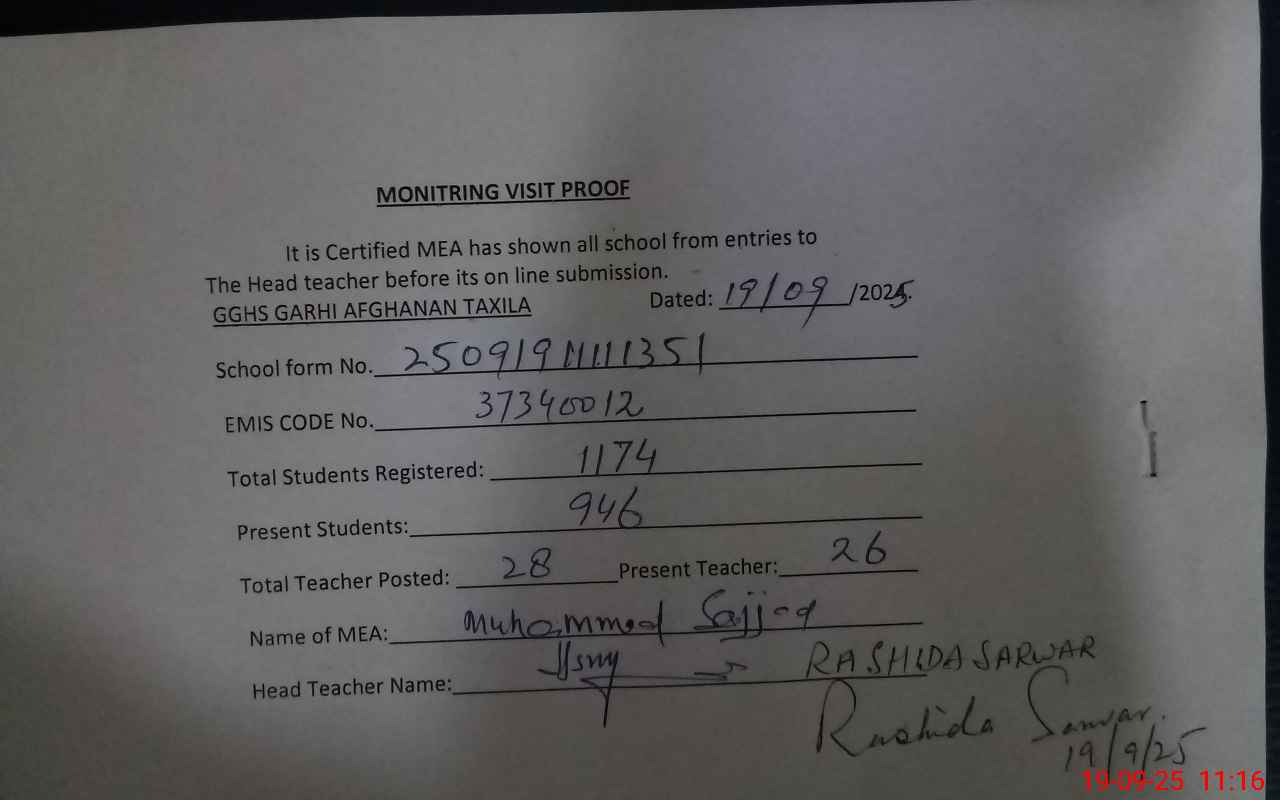 MONITRING VISIT PROOF
It is Certified MEA has shown all school from entries to
The Head teacher before its on line submission.
GGHS GARHI AFGHANAN TAXILA Dated: 19/09/2025.
School form No. 25091911111351
EMIS CODE No. 37340012
Total Students Registered: 1174
Present Students: 946
Total Teacher Posted: 28 Present Teacher: 26
Name of MEA: Muhammad Sajjad
Head Teacher Name: RASHIDA SARWAR
Rashida Sarwar.
19/9/25
19-09-25 11:16